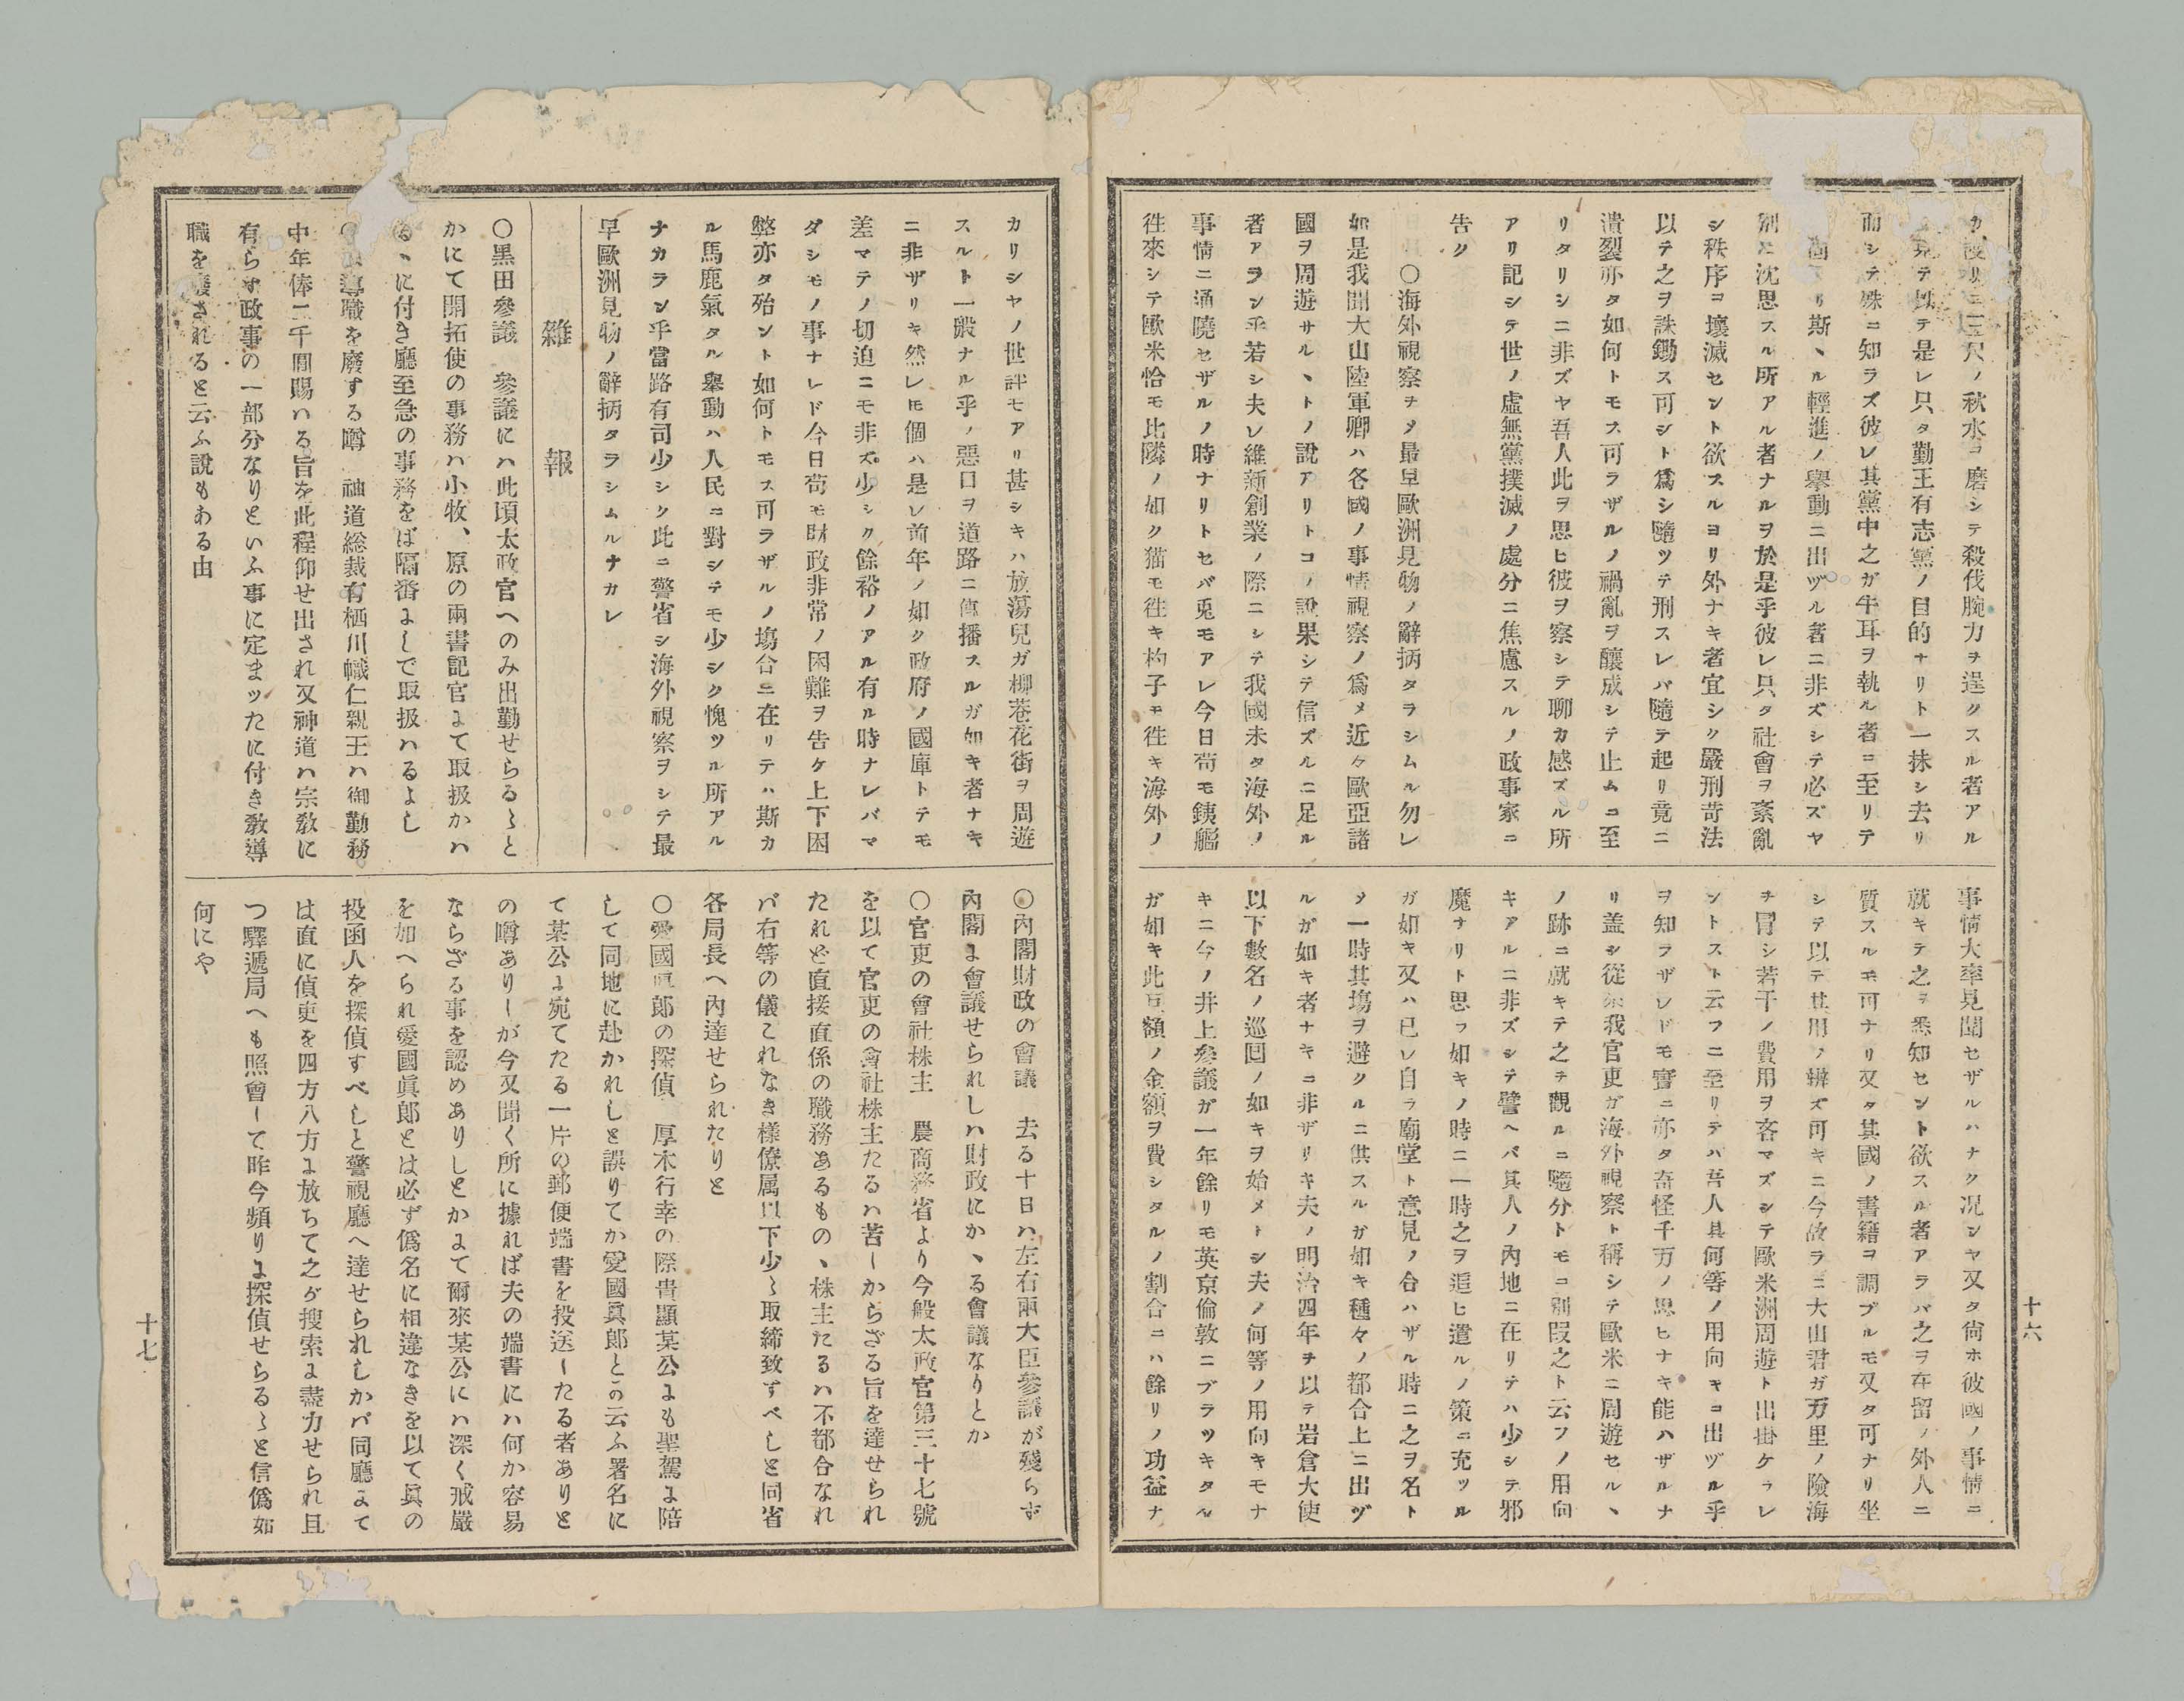 カ後リニ三尺ノ秋水ヲ磨シテ殺伐腕力ヲ逞クスル者アル
テ是レ只タ勤王有志黨ノ目的ナリト一抹シ去リ
而シテ殊ニ知ラズ彼レ其黨中之ガ牛耳ヲ執ル者ニ至リテ
リ斯ヽル輕進ノ擧動ニ出ヅル者ニ非ズシテ必ズヤ
別ニ沈思スル所アル者ナルヲ於是乎彼レ只タ社會ヲ紊亂
シ秩序ヲ壞滅セント欲スルヨリ外ナキ者宜シク嚴刑苛法
以テ之ヲ誅鋤ス可シト爲シ隨ツテ刑スレバ隨テ起リ竟ニ
潰裂亦タ如何トモス可ラザルノ禍亂ヲ釀成シテ止ムニ至
リタリシニ非ズヤ吾人此ヲ思ヒ彼ヲ察シテ聊カ感ズル所
アリ記シテ世ノ虛無黨撲滅ノ處分ニ焦慮スルノ政事家ニ
告ク
○海外視察ヲ〆最早歐洲見物ノ辭柄タラシムル勿レ
如是我聞大山陸軍卿ハ各國ノ事情視察ノ爲メ近々歐亞諸
國ヲ周遊サルヽトノ說アリトコノ說果シテ信ズルニ足ル
者アラン乎若シ夫レ維新創業ノ際ニシテ我國未タ海外ノ
事情ニ通曉セザルノ時ナリトセバ兎モアレ今日苟モ銕艦
徃來シテ歐米恰モ比隣ノ如ク猫モ徃キ杓子モ徃キ海外ノ
事情大率見聞セザルハナク况ンヤ又タ尙ホ彼國ノ事情ニ
就キテ之ヲ悉知セント欲スル者アラバ之ヲ在留ノ外人ニ
質スルモ可ナリ又タ其國ノ書籍ヲ調ブルモ又タ可ナリ坐
シテ以テ其用ヲ辨ズ可キニ今故ラニ大山君ガ万里ノ險海
ヲ冐シ若干ノ費用ヲ吝マズシテ歐米洲周遊ト出掛ケラレ
ントスト云フニ至リテハ吾人其何等ノ用向キニ出ヅル乎
ヲ知ラザレドモ實ニ亦タ奇怪千万ノ思ヒナキ能ハザルナ
リ盖シ從來我官吏ガ海外視察ト稱シテ歐米ニ周遊セルヽ
ノ跡ニ就キテ之ヲ觀ルニ隨分トモニ別段之ト云フノ用向
キアルニ非ズシテ譬ヘバ其人ノ內地ニ在リテハ少シテ邪
魔ナリト思フ如キノ時ニ一時之ヲ逭ヒ遣ルノ策ニ充ツル
ガ如キ又ハ已レ自ラ廟堂ト意見ノ合ハザル時ニ之ヲ名ト
〆一時其塲ヲ避クルニ供スルガ如キ種々ノ都合上ニ出ヅ
ルガ如キ者ナキニ非ザリキ夫ノ明治四年ヲ以テ岩倉大使
以下數名ノ巡回ノ如キヲ始メトシ夫ノ何等ノ用向キモナ
キニ今ノ井上參議ガ一年餘リモ英京倫敦ニブラツキタル
ガ如キ此巨額ノ金額ヲ費シタルノ割合ニハ餘リノ功益ナ
十六
カリシヤノ世評モアリ甚シキハ放蕩兒ガ柳巷花街ヲ周遊
スルト一般ナル乎ノ惡口ヲ道路ニ傳播スルガ如キ者ナキ
ニ非ザリキ然レ𪜈個ハ是レ前年ノ如ク政府ノ國庫トテモ
差マテノ切迫ニモ非ズ少シク餘裕ノアル有ル時ナレバマ
ダシモノ事ナレド今日苟モ財政非常ノ困難ヲ告ケ上下困
弊亦タ殆ント如何トモス可ラザルノ塲合ニ在リテハ斯カ
ル馬鹿氣タル擧動ハ人民ニ對シテモ少シク愧ツル所アル
ナカラン乎當路有司少シク此ニ警省シ海外視察ヲシテ最
早歐洲見物ノ辭柄タラシムルナカレ
雜報
○黑田參議 參議にハ此頃太政官へのみ出勤せらるゝと
かにて開拓使の事務ハ小牧、原の兩書記官よて取扱かハ
るゝに付き廳至急の事務をば隔番よしで取扱ハるよし
導職を廢する噂 神道総裁有栖川幟仁親王ハ御勤務
中年俸二千圓賜ハる旨を此程仰せ出され又神道ハ宗敎に
有らず政事の一部分なりといふ事に定まッたに付き敎導
職を廢されると云ふ說もある由
○內閣財政の會議 去る十日ハ左右兩大臣參議が殘らず
內閣よ會議せられしハ財政にかゝる會議なりとか
○官吏の會社株主 農商務省より今般太政官第三十七號
を以て官吏の會社株主たるハ苦しからざる旨を達せられ
たれど直接直係の職務あるものゝ株主たるハ不都合なれ
バ右等の儀これなき樣僚属以下少〻取締致すべしと同省
各局長へ內達せられたりと
○愛國眞郎の探偵 厚木行幸の際貴顯某公よも聖駕よ陪
して同地に赴かれしと誤りてか愛國眞郎との云ふ署名に
て某公よ宛てたる一片の郵便端書を投送したる者ありと
の噂ありしが今又聞く所に據れば夫の端書にハ何か容易
ならざる事を認めありしとかよて爾來某公にハ深く戒嚴
を加へられ愛國眞郎とは必ず僞名に相違なきを以て眞の
投函人を探偵すべしと警視廳へ達せられしかバ同廳よて
は直に偵吏を四方八方よ放ちて之が搜索よ盡力せられ且
つ驛遞局へも照會して昨今頻りよ探偵せらるゝと信僞如
何にや
十七